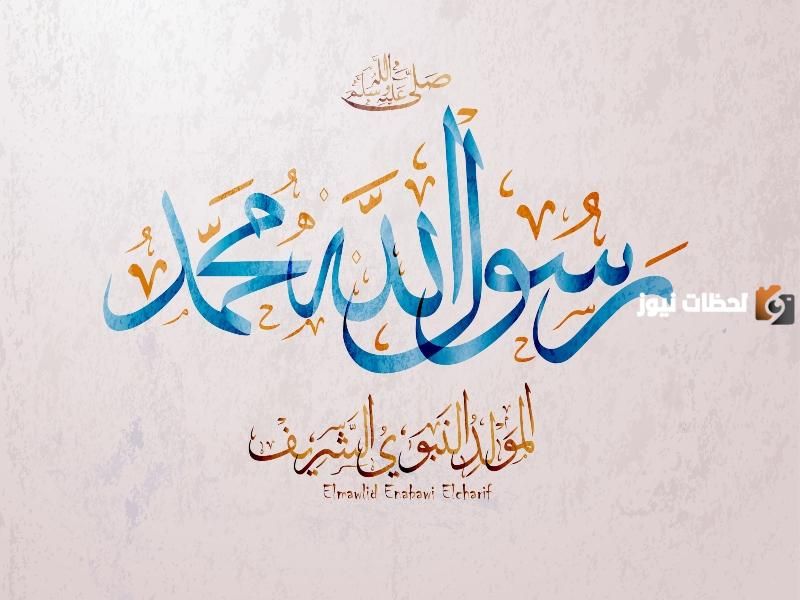 صَلَّى اللَّهُ عَلَيْهِ وَسَلَّمَ
رسول الله محمد
المَوْلِدُ النَّبَوِيُّ الشَّرِيف
Elmawlid Enabawi Elcharif
لحظات نيوز